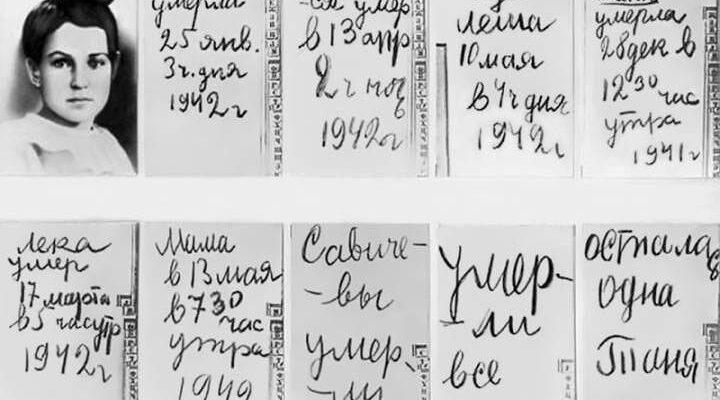 умерла
25 янв.
3ч. дня
1942 г
в 13 апр
2 ч ноч
1942 г
Леша
10 мая
в 4ч дня
1942 г
умерла
28 дек в
12 30 час
утра
1941 г
Лека
умер
17 марта
в 5 часутр
1942 г
Мама
в 13 мая
в 7 30
час
утра
1942
Савиче-
-вы
умер
-ли
умер-
-ли
все
осталась
одна
Таня